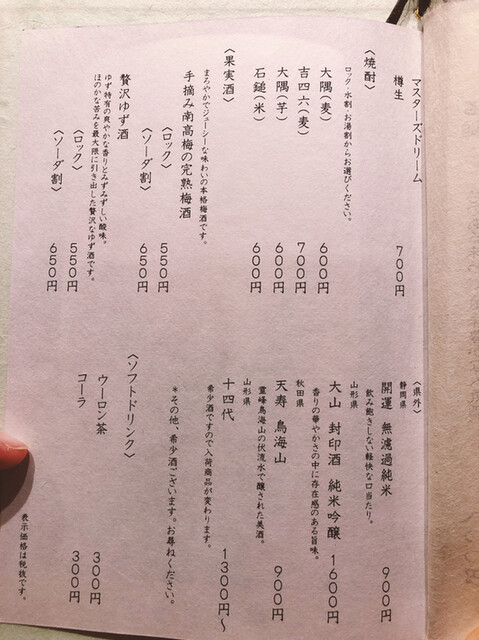 マスターズドリーム
樽生 700円
〈焼酎〉
ロック・水割・お湯割からお選びください。
大隅(麦) 600円
吉四六(麦) 700円
大隅(芋) 600円
石鎚(米) 600円
〈果実酒〉
まろやかでジューシーな味わいの本格梅酒です。
手摘み南高梅の完熟梅酒
〈ロック〉 550円
〈ソーダ割〉 650円
贅沢ゆず酒
ゆず特有の爽やかな香りとみずみずしい酸味。
ほのかな苦みを最大限に引き出した贅沢なゆず酒です。
〈ロック〉 550円
〈ソーダ割〉 650円
〈県外〉
静岡県
開運 無濾過純米 900円
飲み飽きしない軽快な口当たり。
山形県
大山 封印酒 純米吟醸 1600円
香りの華やかさの中に存在感のある旨味。
秋田県
天寿 鳥海山 900円
霊峰鳥海山の伏流水で醸された美酒。
山形県
十四代 1300円〜
希少酒ですので入荷商品が変わります。
*その他、希少酒ございます。お尋ねください。
〈ソフトドリンク〉
ウーロン茶 300円
コーラ 300円
表示価格は税抜です。